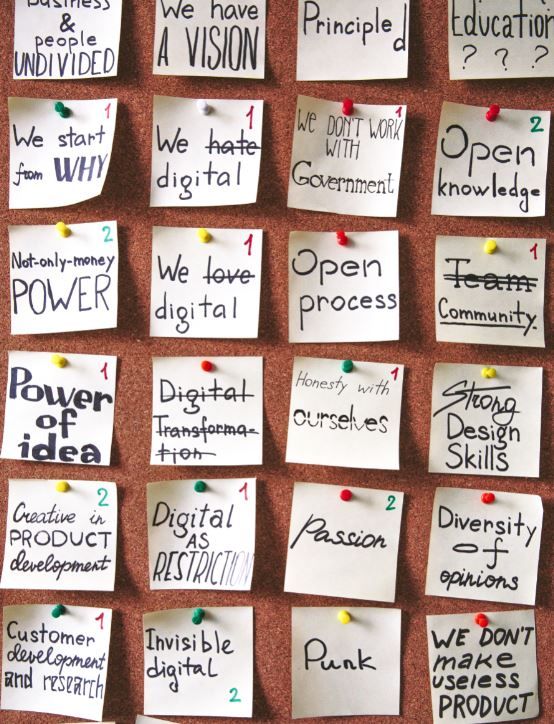 business
&
people
UNDIVIDED
We have
A VISION
Principled
Education
? ? ?
1
We start
from WHY
1
We hate
digital
1
WE DON'T WORK
WITH
Government
2
Open
knowledge
2
Not-only-money
POWER
1
We love
digital
Open
process
1
Team
Community.
1
Power
of
idea
Digital
Transforma-
tion
1
Honesty with
ourselves
Strong
Design
Skills
2
Creative in
PRODUCT
development
1
Digital
AS
RESTRICTION
2
Passion
Diversity
of
opinions
1
Customer
development
and research
Invisible
digital
2
Punk
WE DON'T
make
useless
PRODUCT